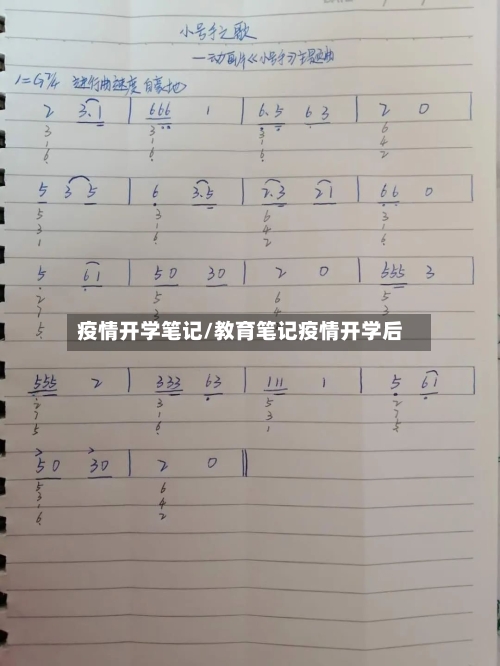 小号手之歌
—动画片《小号手》主题曲
1=G 2/4 进行曲速度 自豪地
2 3.1 | 666 1 | 6.5 63 | 2 0
3 3 6 6
1 1 1 4
6 6 6 2
5 3 5 | 6 3.5 | 2.3 21 | 66 0
5 3 6 3
3 1 4 1
1 6 2 6
5 61 | 50 30 | 2 0 | 555 3
2 5 6 5
7 3 4 3
5
疫情开学笔记/教育笔记疫情开学后
555 2 | 333 63 | 111 1 | 5 61
2 3 5 2
7 1 3 7
5 6 1 5
50 30 | 2 0 ||
5 6
3 4
1 2
6